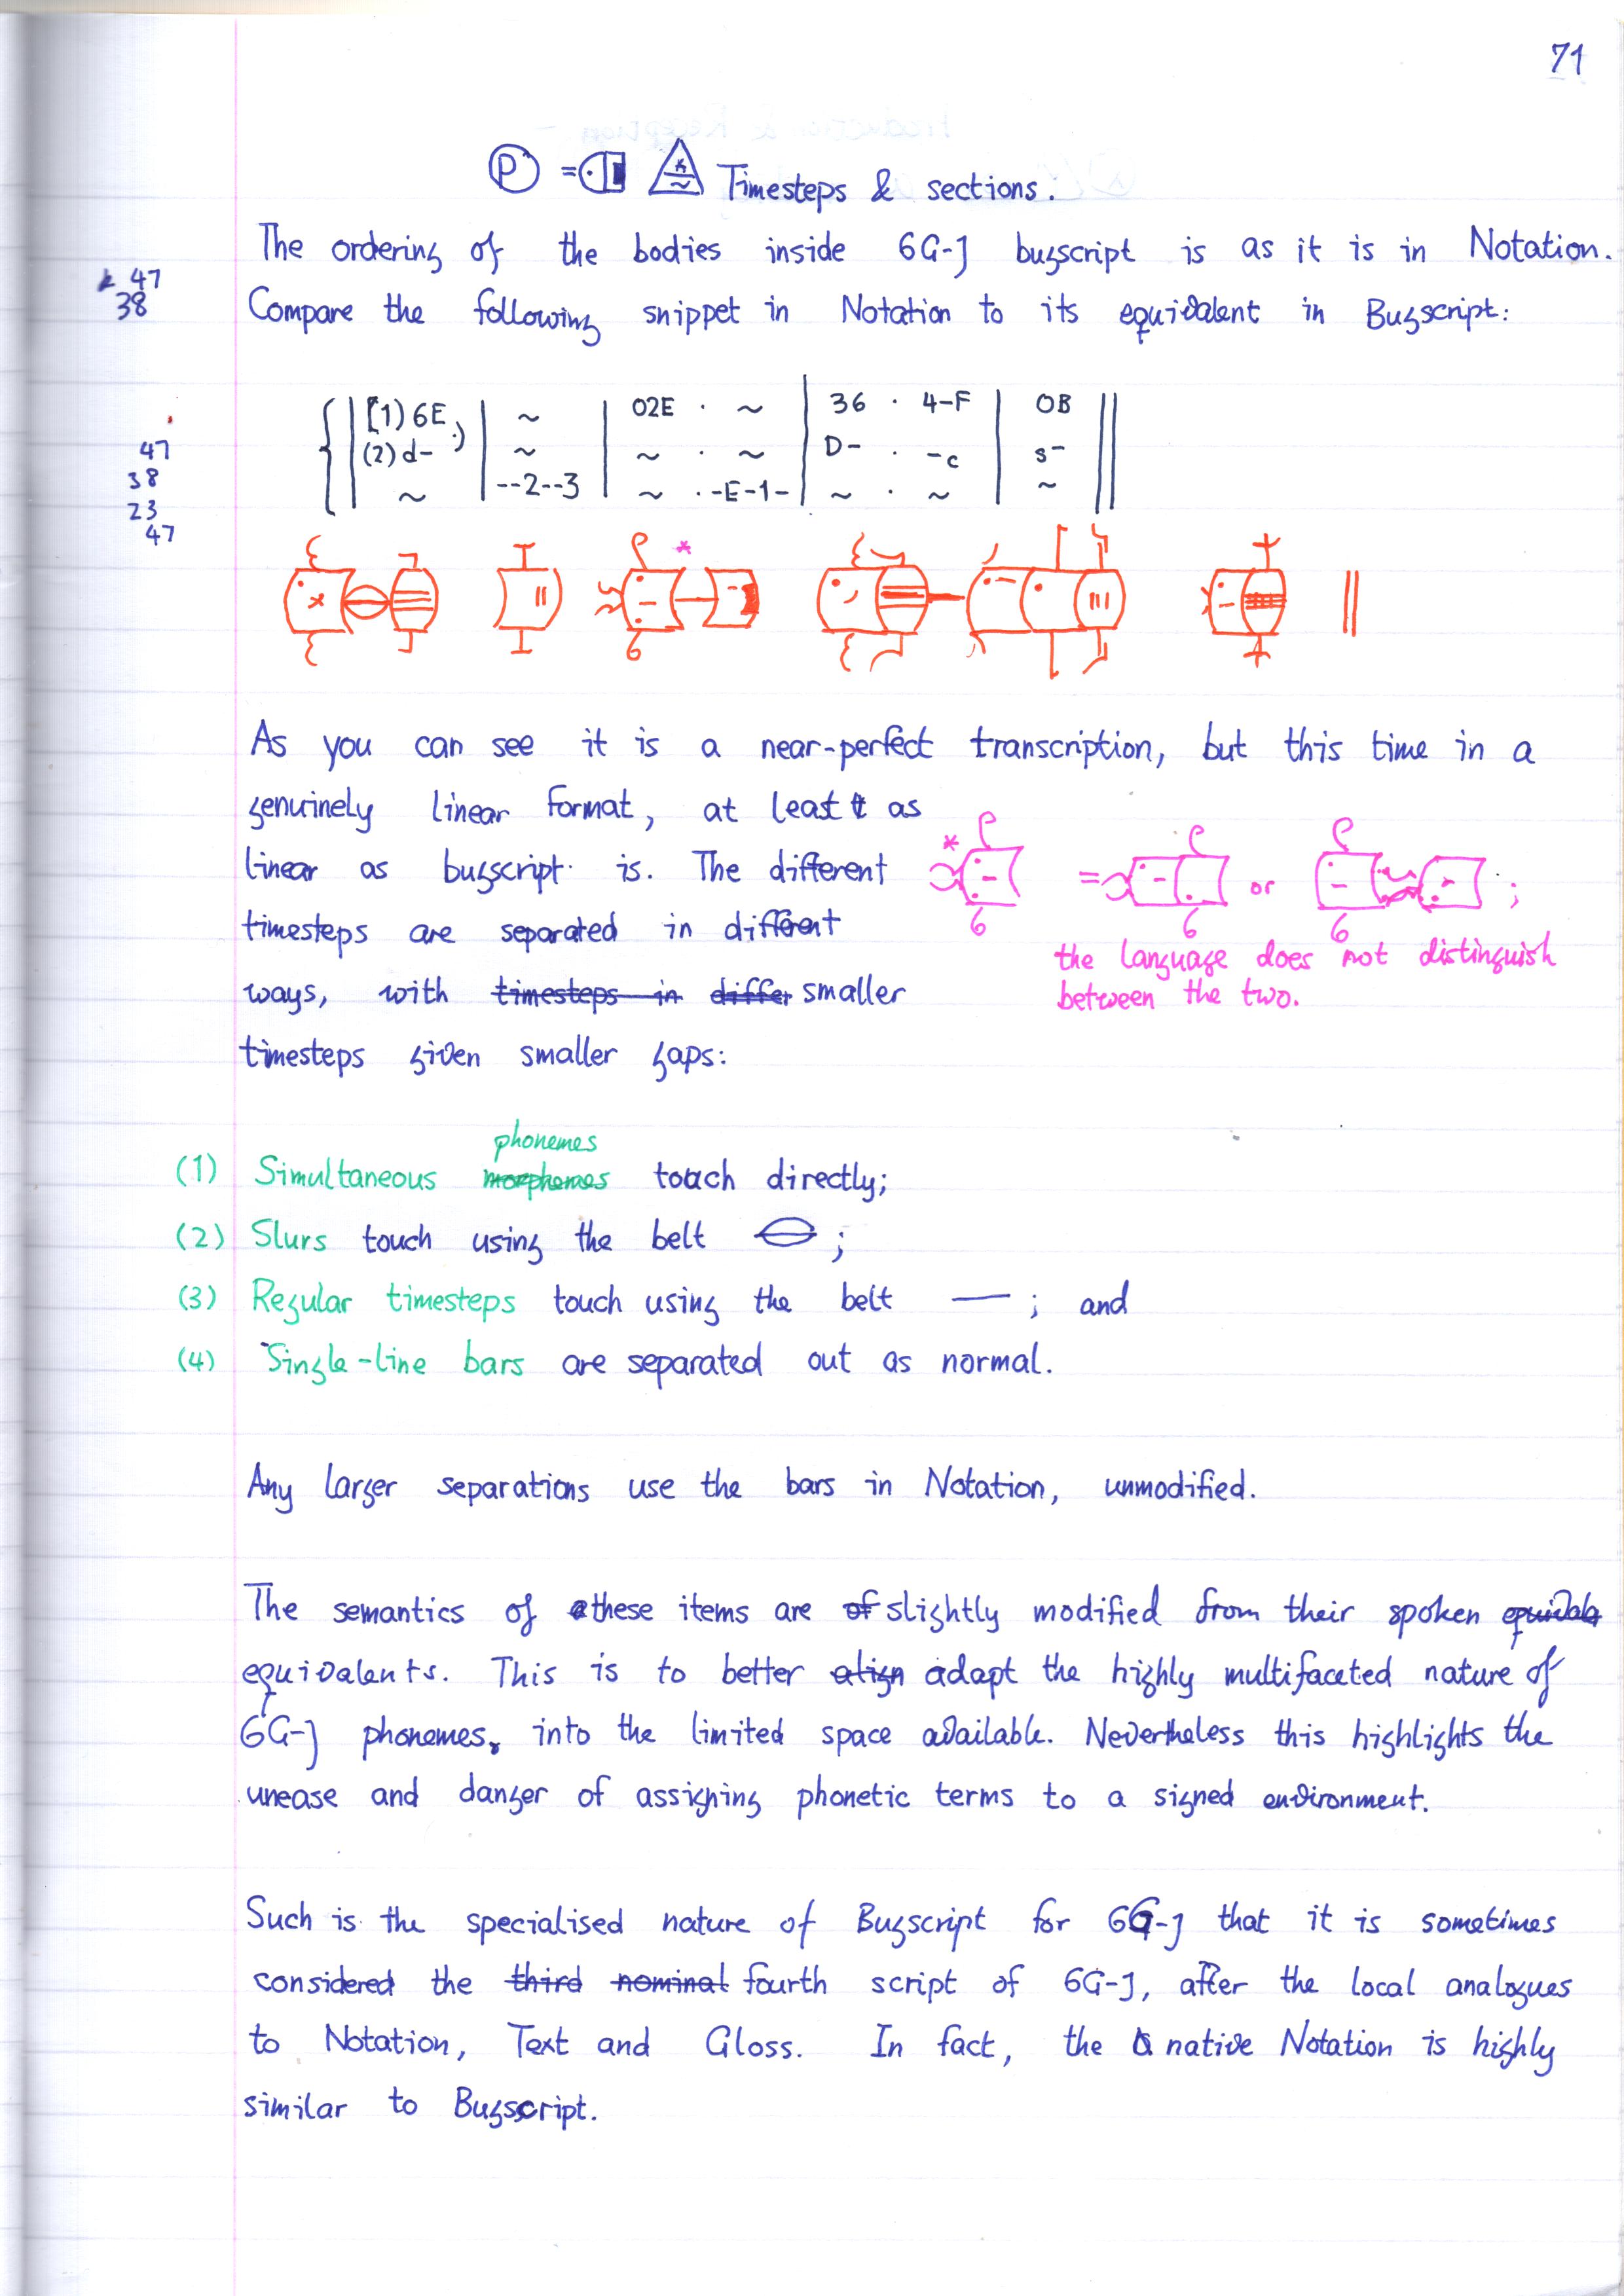 71
P Timesteps & sections.
The ordering of the bodies inside 6G-J bugscript is as it is in Notation.
47
38
Compare the following snippet in Notation to its equivalent in Bugscript:
[1) 6E .) | ~ | 02E · ~ | 36 · 4-F | 0B ||
(2) d- | ~ | ~ · ~ | D- · -c | s- ||
~ | --2--3 | ~ · -E-1- | ~ · ~ | ~ ||
47
38
23
47
*
As you can see it is a near-perfect transcription, but this time in a
genuinely linear format, at least as
linear as bugscript is. The different
timesteps are separated in different
ways, with timesteps in differ smaller
timesteps given smaller gaps:
* = or ;
the language does not distinguish
between the two.
phonemes
(1) Simultaneous morphemes touch directly;
(2) Slurs touch using the belt ;
(3) Regular timesteps touch using the belt — ; and
(4) Single-line bars are separated out as normal.
Any larger separations use the bars in Notation, unmodified.
The semantics of these items are of slightly modified from their spoken equivale
equivalents. This is to better align adapt the highly multifaceted nature of
6G-J phonemes, into the limited space available. Nevertheless this highlights the
unease and danger of assigning phonetic terms to a signed environment.
Such is the specialised nature of Bugscript for 6G-J that it is sometimes
considered the third nominal fourth script of 6G-J, after the local analogues
to Notation, Text and Gloss. In fact, the native Notation is highly
similar to Bugscript.